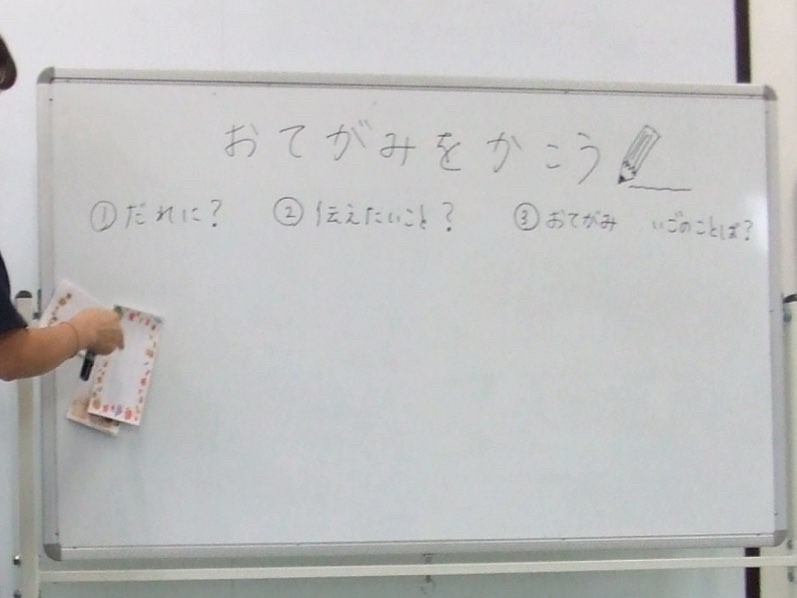 おてがみをかこう
①だれに? ②伝えたいこと? ③おてがみ いごのことば?